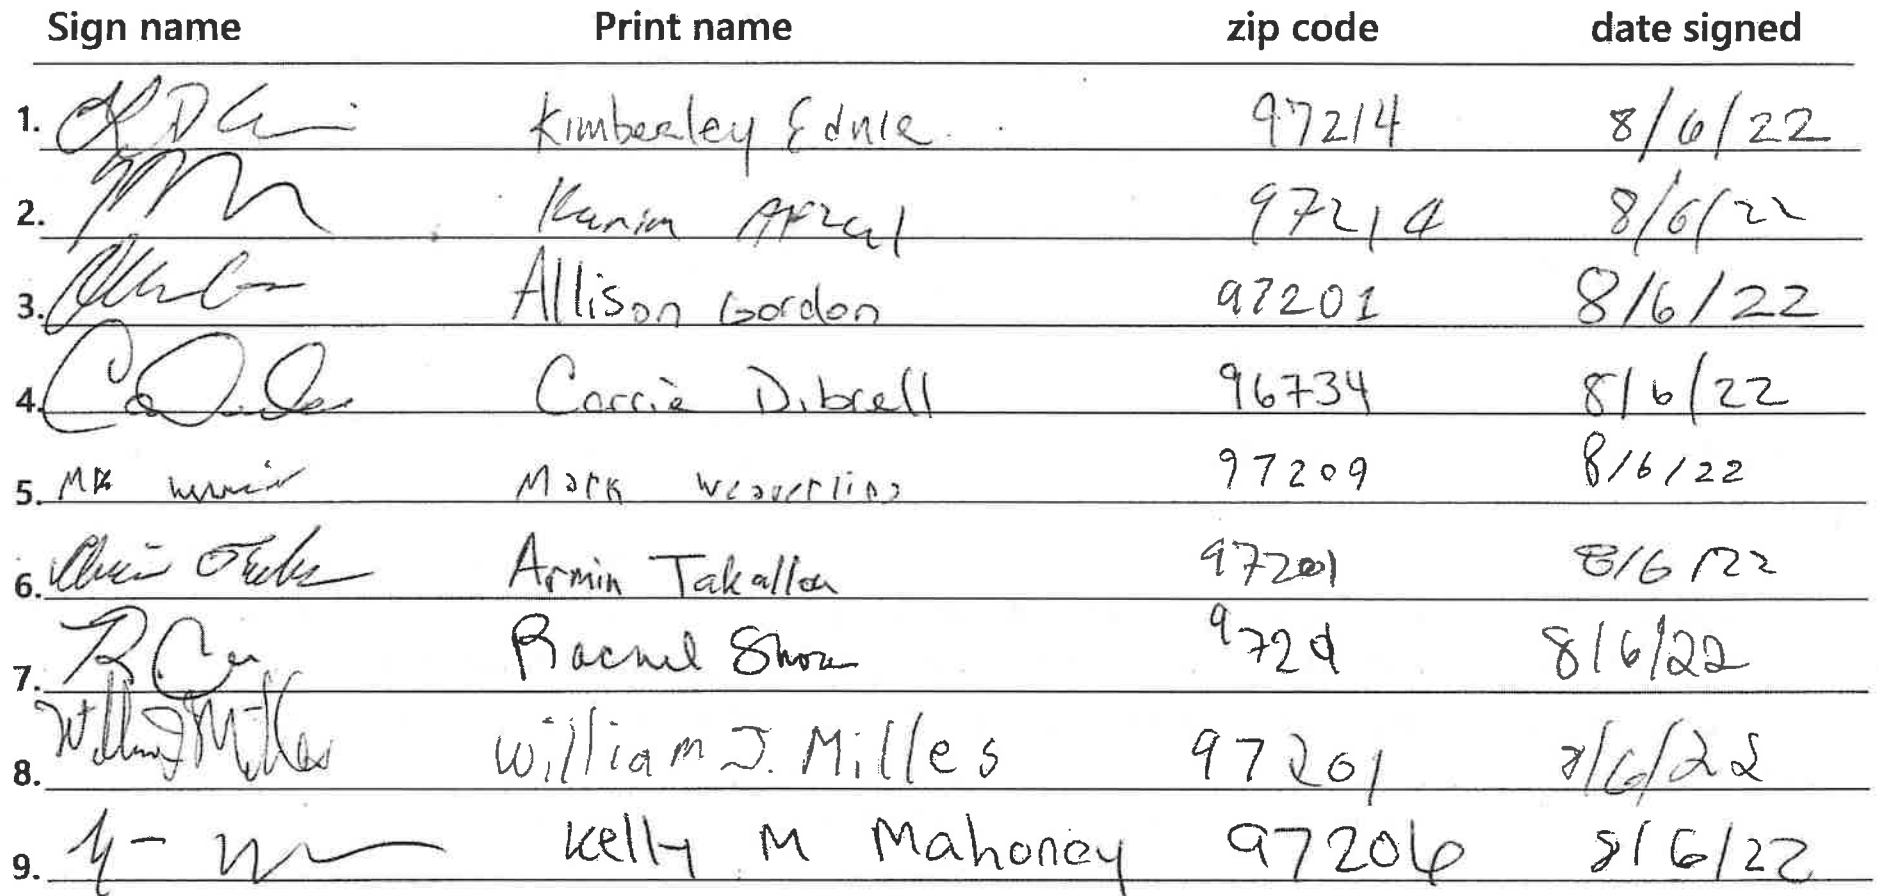 Sign name Print name zip code date signed
1. Kimberley Ednie 97214 8/6/22
2. Karim Afzal 97214 8/6/22
3. Allison Gordon 97201 8/6/22
4. Carrie Dibrell 96734 8/6/22
5. Mark 97209 8/6/22
6. Armin Takallou 97201 8/6/22
7. Rachel 8/6/22
8. William J. Milles William J. Milles 97201 8/6/22
9. Kelly M Mahoney 97206 8/6/22